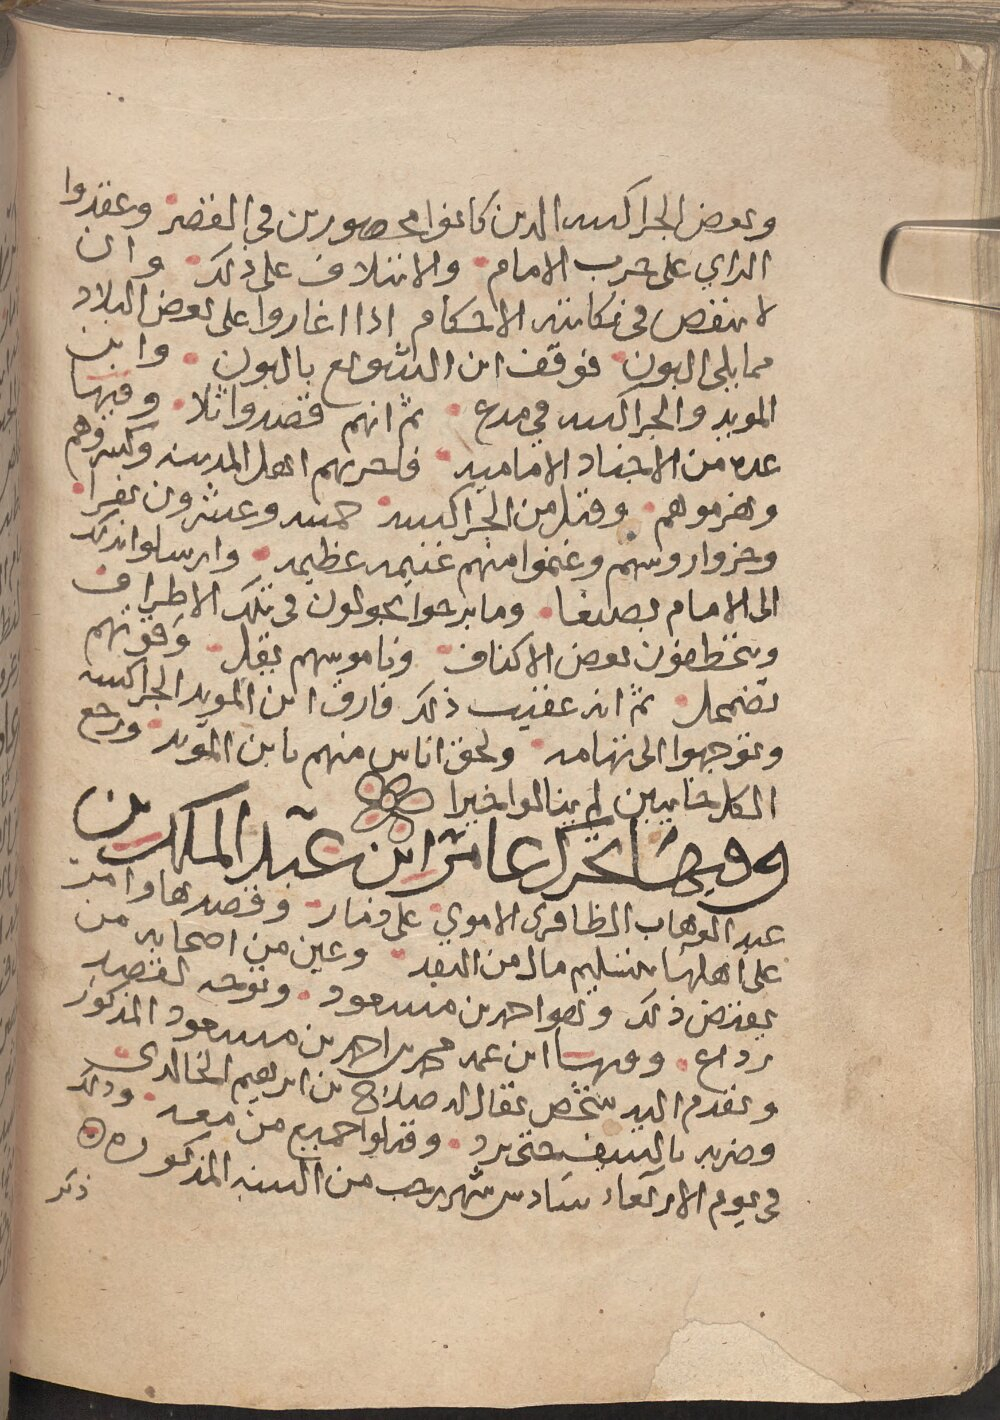 وبعض الجراكسه الدين كانوا محصورين في القصر وعقدوا
الراي على حرب الامام والائتلاف على ذلك وان
لا ينقص في نكايته الاحكام اذا اغاروا على بعض البلاد
مما يلي البون فوقف ابن الشويع بالبون وابن
المويد والجراكسه في مدع ثم انهم قصدوا ثلا وفيها
عده من الاجناد الاماميه فحربهم اهل المدينه وكسروهم
وهزموهم وقتل من الجراكسه خمسه وعشرون نفرا
وحزوا روسهم وغنموا منهم غنيمه عظيمه وارسلوا بذلك
الى الامام بصنعا وما برحوا يجولون في تلك الاطراف
ويتخطفون بعض الاكناف وناموسهم يقل وقوتهم
تضمحل ثم انه عقيب ذلك فارق ابن المويد الجراكسه
وتوجهوا الى تهامه ولحق اناس منهم بابن المويد ورجع
الكل خايبين لم ينالوا خيرا
وفيها تحرك عامر ابن عبد الملك بن
عبد الوهاب الظافري الاموي على دمار وقصدها وامر
على اهلها بتسليم مال من النقد وعين من اصحابه من
يقبض ذلك وهو احمد بن مسعود وتوجه لقصد
رداع وفيها ابن عمه محمد بن احمد بن مسعود المذكور
وتقدم اليه شخص يقال له صلاح بن ابرهيم الخالدي
وضربه بالسيف حتى برد وقتلوا جميع من معه وذلك
في يوم الاربعاء سادس شهر رجب من السنه المذكوره
ذكر